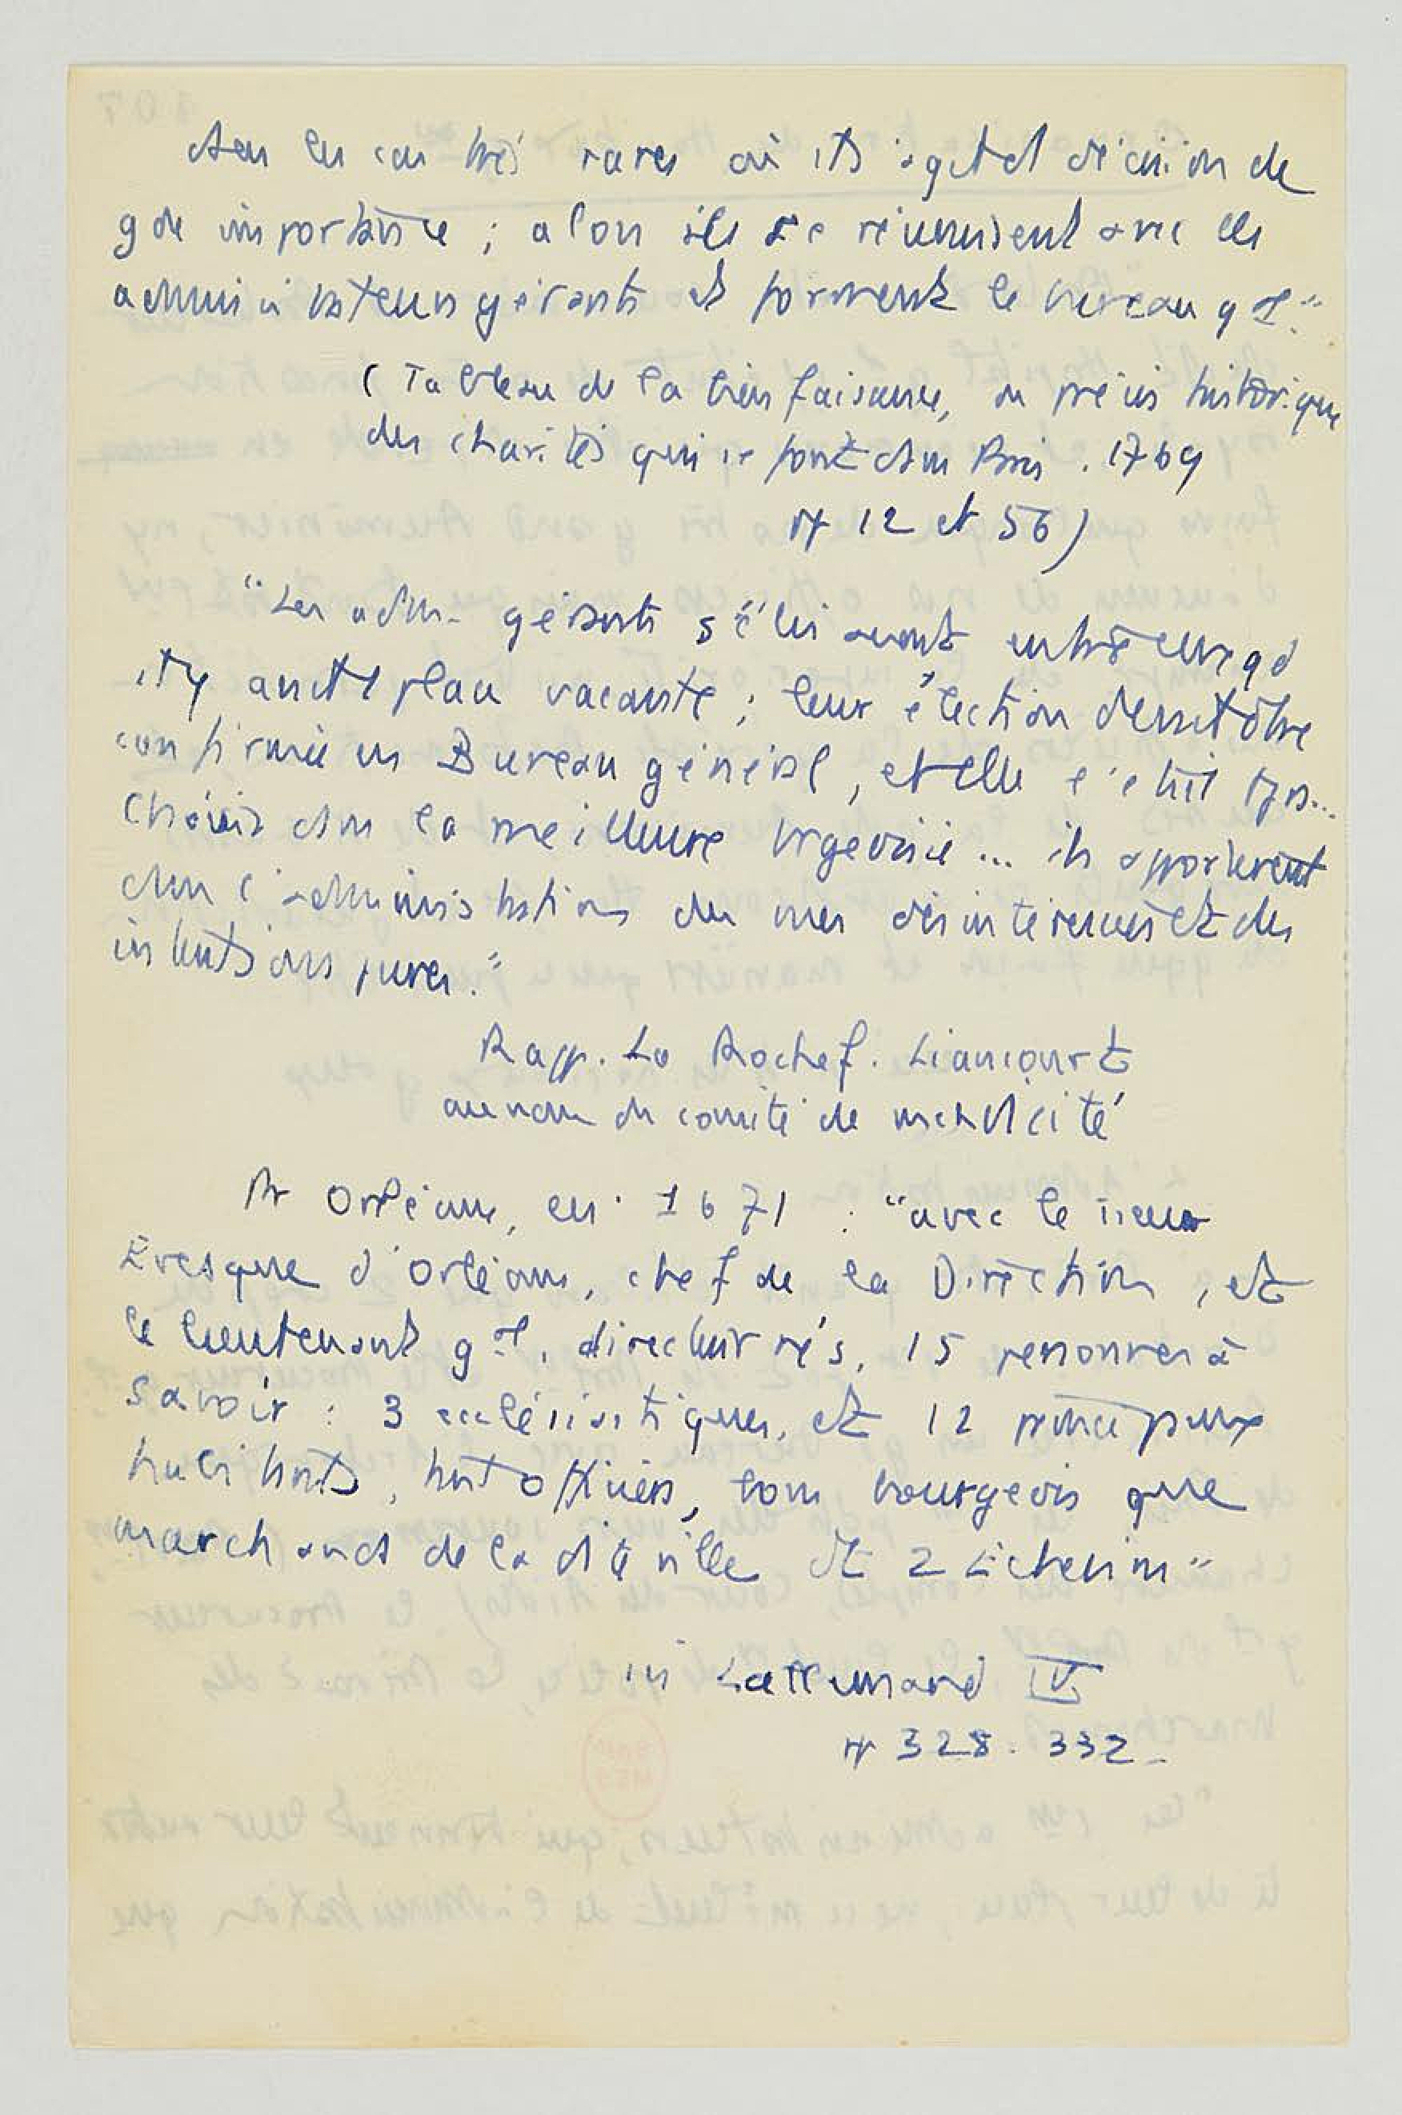 dans les cas très rares où il s'agit d décision de
gde importance ; alors ils se réunissent avec les
administrateurs gérants et forment le bureau gal."
( Tableau de la bienfaisance, ou précis historique
des charités qui se font dans Paris . 1769
pp 12 et 56)
"Les adm. gérants s'élisaient entre eux qd
il y avait 1 place vacante ; leur élection devait être
confirmée en Bureau général, et elle l'était tjrs...
Choisis dans la meilleure brgeoisie ... ils apportèrent
dans l'administration des vues désintéressées et des
intentions pures."
Rapp. La Rochef. Liancourt
au nom du comité de mendicité
A Orléans, en 1671 : "avec le sieur
Evesque d'Orléans, chef de la Direction, et
le lieutenant gal, directeur nés, 15 personnes à
savoir : 3 ecclésiastiques, et 12 principaux
habitants, tant officiers, bons bourgeois que
marchands de la dite ville et 2 Echevins"
in Lallemand IV
pp 328. 332